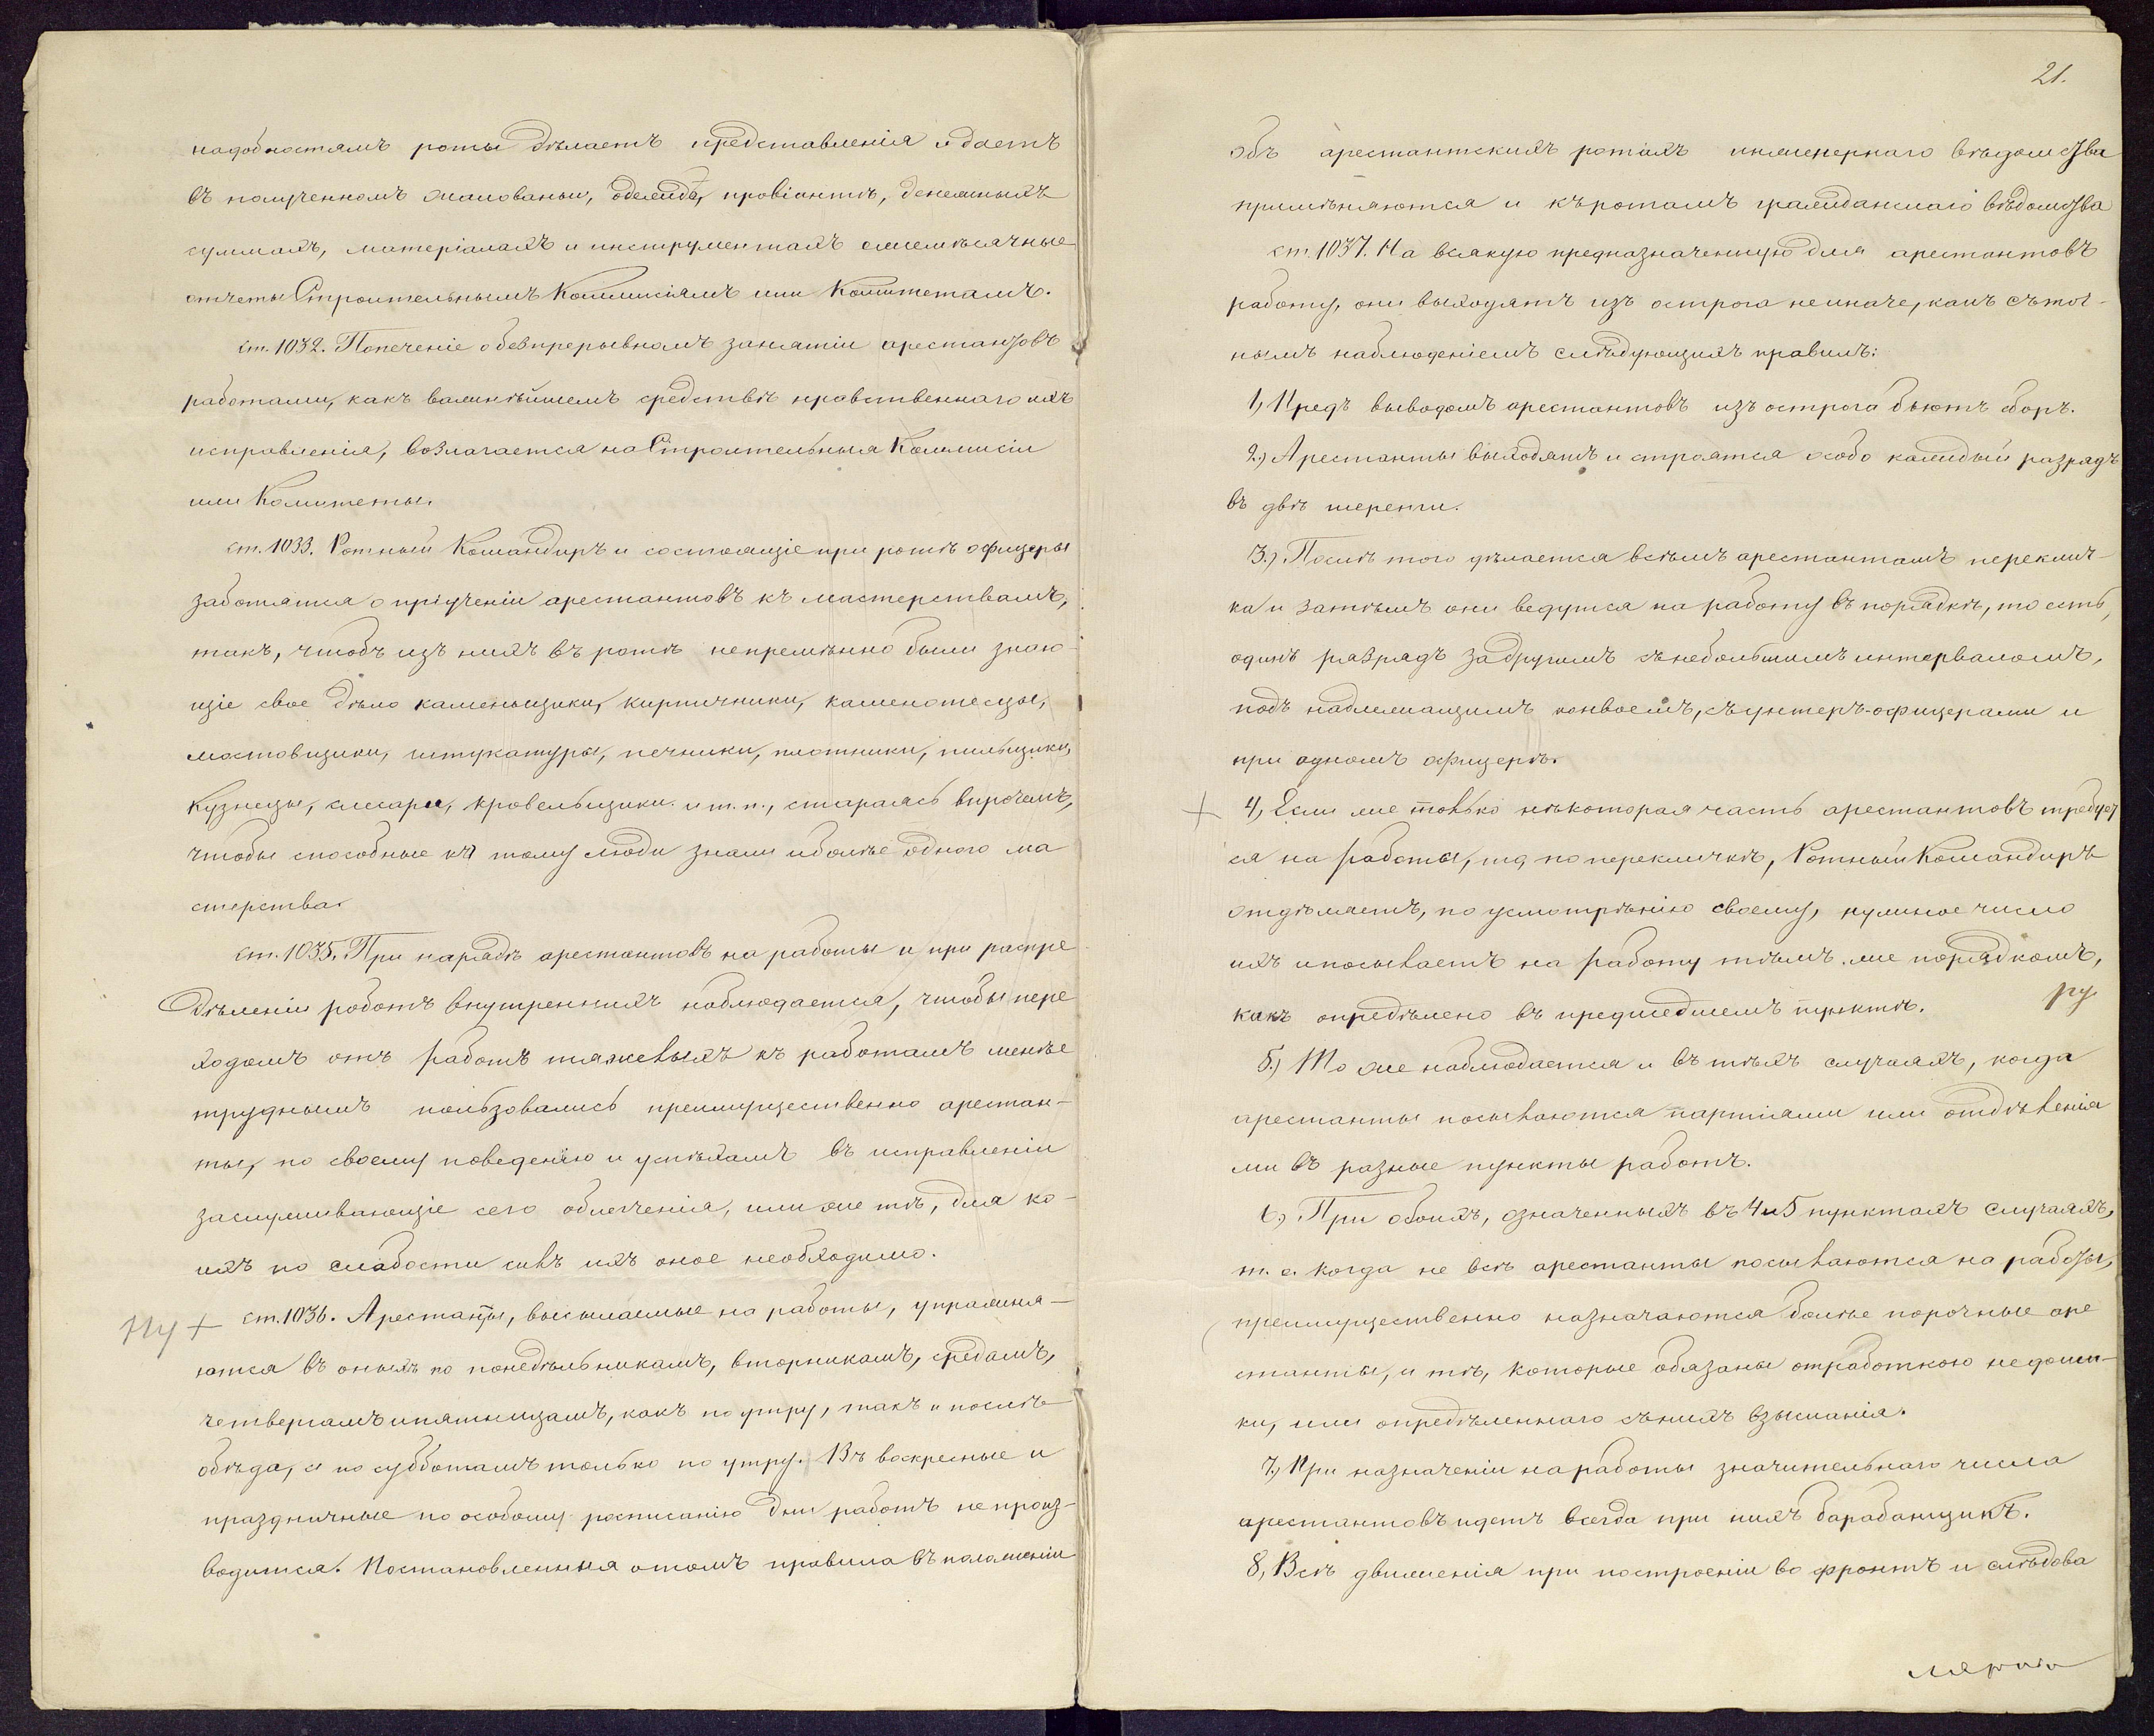 надобностямъ роты дѣлаетъ представленія и даетъ
въ полученномъ жалованьи, одеждѣ, провіантѣ, денежныхъ
суммахъ, матеріалахъ и инструментахъ ежемѣсячные
отчеты Строительнымъ Коммисіямъ или Комитетамъ.
ст. 1032. Попеченіе о безпрерывномъ занятіи арестантовъ
работами, какъ важнѣйшемъ средствѣ нравственнаго ихъ
исправленія, возлагается на Строительныя Коммисіи
или Комитеты.
ст. 1033. Ротный Командиръ и состоящіе при ротѣ офицеры
заботятся о пріученіи арестантовъ къ мастерствамъ,
такъ, чтобъ изъ нихъ въ ротѣ непремѣнно были знаю-
щіе свое дѣло каменьщики, кирпичники, каменотесцы,
мостовщики, штукатуры, печники, плотники, пильщики,
кузнецы, слесаря, кровельщики и т. п., стараясь впрочемъ,
чтобы способные къ тому люди знали и болѣе одного ма
стерства.
ст. 1035. При нарядѣ арестантовъ на работы и при распре
дѣленіи работъ внутреннихъ наблюдается, чтобы пере
ходомъ отъ работъ тяжелыхъ къ работамъ менѣе
труднымъ пользовались преимущественно арестан-
ты, по своему поведенію и успѣхамъ въ исправленіи
заслуживающіе сего облегченія, или же тѣ, для ко-
ихъ по слабости силъ ихъ оное необходимо.
+ ст. 1036. Арестанты, высылаемые на работы, упражня-
ются въ оныхъ по понедѣльникамъ, вторникамъ, средамъ,
четвергамъ и пятницамъ, какъ по утру, такъ и послѣ
обѣда, а по субботамъ только по утру. Въ воскресные и
праздничные по особому росписанію дни работъ не произ-
водится. Постановленныя о томъ правила въ положеніи
21.
объ арестантскихъ ротахъ инженернаго вѣдомства
примѣняются и къ ротамъ гражданскаго вѣдомства
ст. 1037. На всякую предназначенную для арестантовъ
работу, они выходятъ изъ острога не иначе, какъ съ точ-
нымъ наблюденіемъ слѣдующихъ правилъ:
1, Предъ выводомъ арестантовъ изъ острога бьютъ сборъ.
2.) Арестанты выходятъ и строятся особо каждый разрядъ
въ двѣ шеренги.
3.) Послѣ того дѣлается всѣмъ арестантамъ переклич-
ка и затѣмъ они ведутся на работу въ порядкѣ, то есть,
одинъ разрядъ за другимъ съ небольшимъ интерваломъ,
подъ надлежащимъ конвоемъ, съ унтеръ-офицерами и
при одномъ офицерѣ.
+ 4, Если же только нѣкоторая часть арестантовъ требует
ся на работы, то, по перекличкѣ, Ротный Командиръ
отдѣляетъ, по усмотрѣнію своему, нужное число
ихъ и посылаетъ на работу тѣмъ же порядкомъ,
какъ опредѣлено въ предшедшемъ пунктѣ.
5.) То же наблюдается и въ тѣхъ случаяхъ, когда
арестанты посылаются партіями или отдѣленія
ми въ разные пункты работъ.
6.) При обоихъ, означенныхъ въ 4 и 5 пунктахъ случаяхъ,
т. е. когда не всѣ арестанты посылаются на работы,
преимущественно назначаются болѣе порочные аре
станты, и тѣ, которые обязаны отработкою недоим-
ки, или опредѣленнаго съ нихъ взысканія.
7.) При назначеніи на работы значительнаго числа
арестантовъ идетъ всегда при нихъ барабанщикъ.
8, Всѣ движенія при построеніи во фронтъ и слѣдова